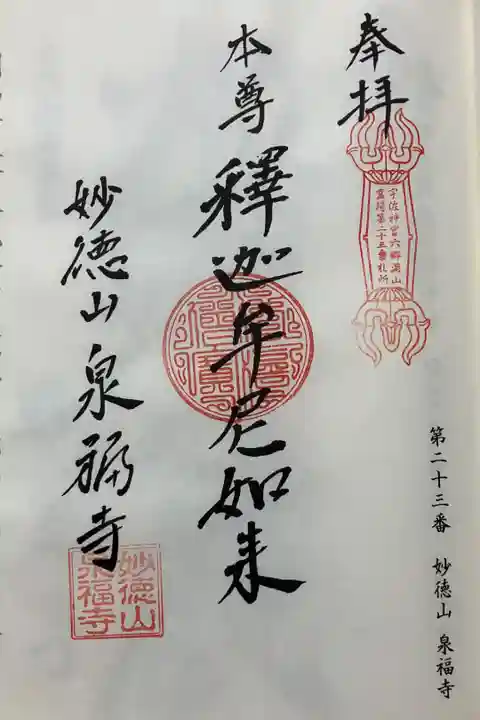 奉拝
宇佐神宮六郷満山
霊場第二十五番札所
第二十三番 妙徳山 泉福寺
本尊 釋迦牟尼如来
妙徳山 泉福寺
妙徳山
泉福寺